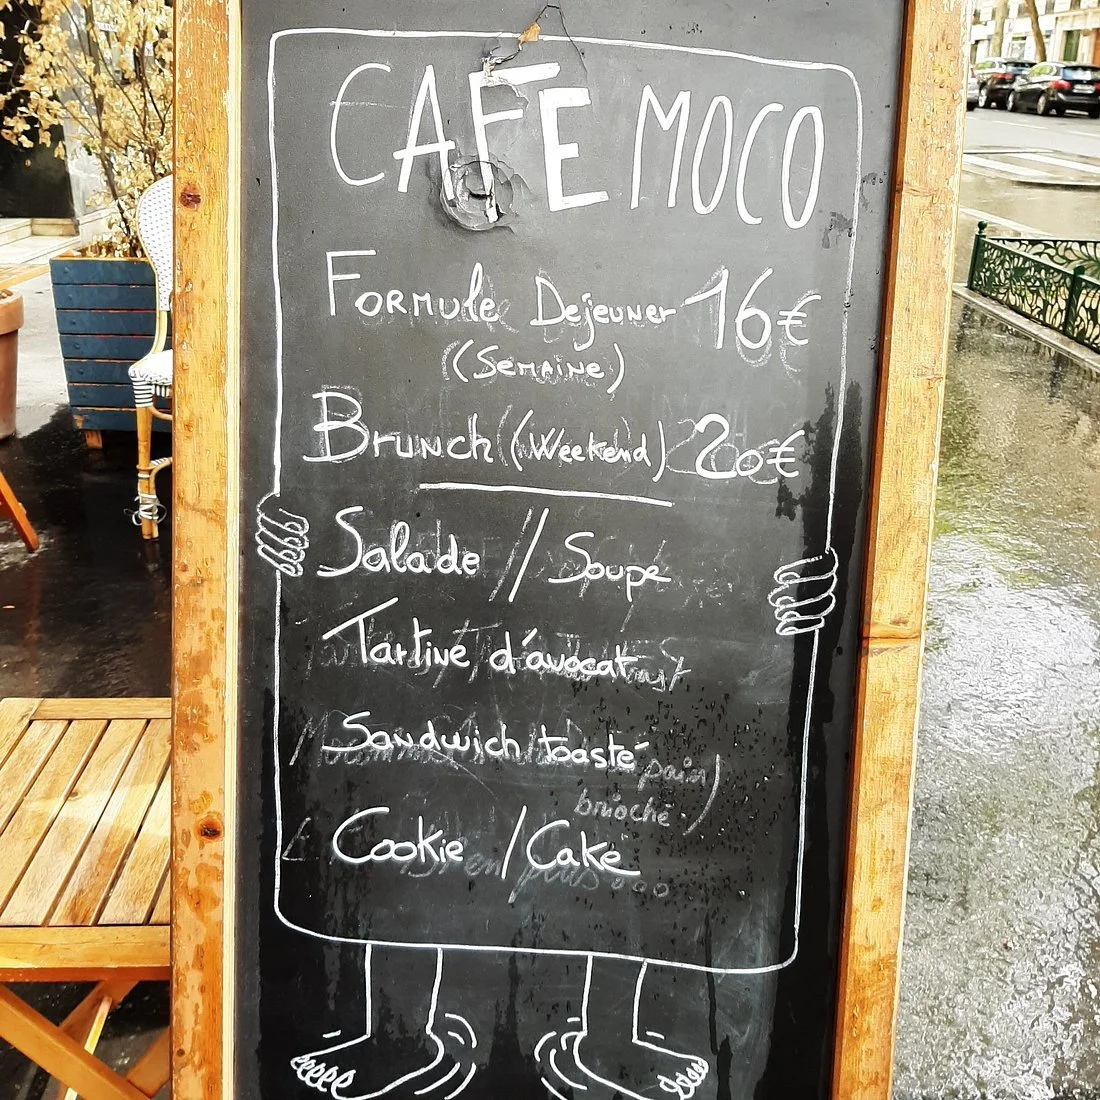 CAFE MOCO
FORMULE DEJEUNER 16€
(SEMAINE)
BRUNCH (Weekend) 20€
Salade // Soupe
Tartine d'avocat
Sandwich toasté
pain)
brioché
Cookie / Cake
en plus...